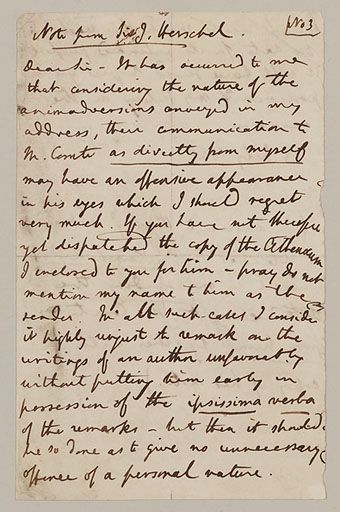 Note from Sir J. Herschel.
No 3
Dear Sir - It has occurred to me
that considering the nature of the
animadversions conveyed in my
address, their communication to
M. Comte as directly from myself
may have an offensive appearance
in his eyes which I should regret
very much. If you have not therefore
yet dispatched the copy of the Athenaeum
I enclosed to you for him - pray do not
mention my name to him as the
sender. In all such cases I consider
it highly unjust to remark on the
writings of an author unfavorably
without putting him early in
possession of the ipsissima verba
of the remarks - but then it should
be so done as to give no unnecessary
offence of a personal nature.